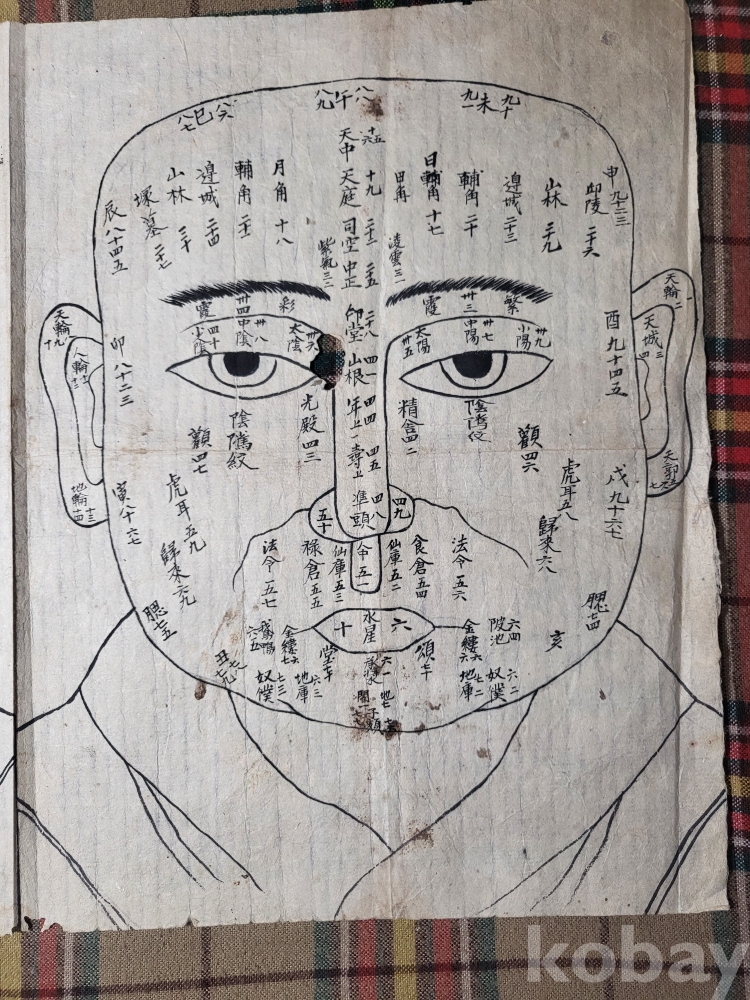 八七 巳 八六
八九 午 八八
九一 未 九十
申 九十二三
天中 十六
天庭 十九
司空 二十二
中正 二十五
印堂 二十八
山根 四一
年上 四四
壽上 四五
準頭 四八
月角 十八
輔角 二十一
邉城 二十四
山林 三十
塚墓 二十七
辰 八十四五
日角 十七
輔角 二十
邉城 二十三
山林 二十九
邱陵 二十六
紫氣 三二
凌雲 三一
彩
霞
繁
霞
太陰 卅六
中陰 卅八
小陰 四十
太陽 卅五
中陽 卅七
小陽 卅九
卅四
卅三
天輪 九
人輪
地輪
天輪 二
天城 三
天郭
卯 八十二三
寅 八十六七
酉 九十四五
戌 九十六七
陰隲紋
陰隲紋
光殿 四三
精舍 四二
顴 四七
顴 四六
虎耳 五九
虎耳 五八
歸來 六九
歸來 六八
五十
四九
法令 五七
祿倉 五五
仙庫 五三
人中 五一
仙庫 五二
食倉 五四
法令 五六
腮 七五
腮 七四
水星 六十
鵞鴨 六五
金縷 六七
金縷 六六
陂池 六四
頌 七十
亥
丑
奴僕 七三
地庫 六三
承漿 六一
地庫 七二
奴僕 六二
kobay